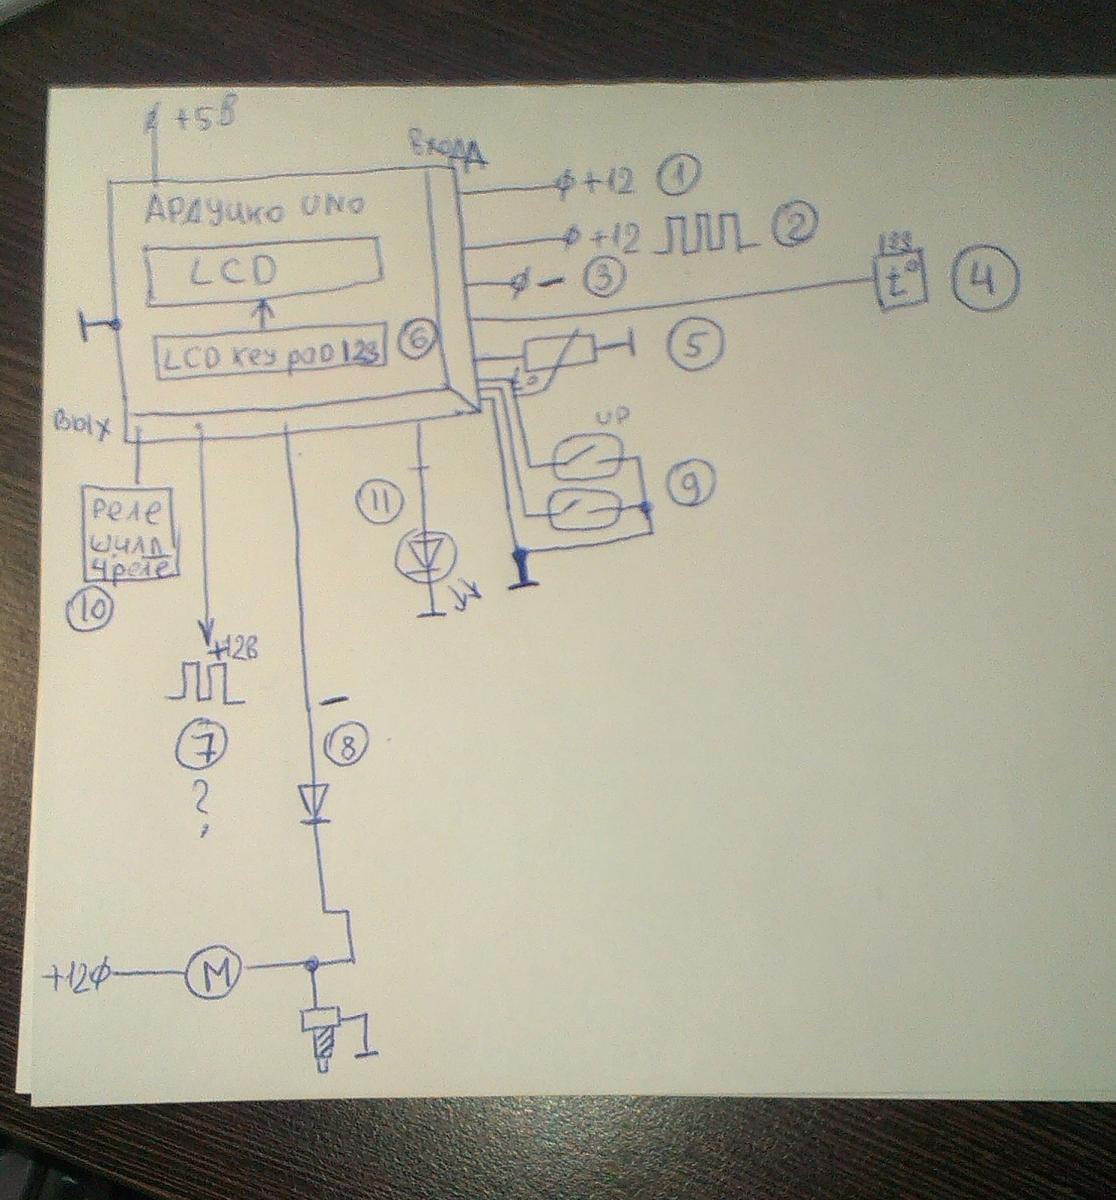 +5В
Входа
АРДУИНО UNO
+12 1
+12 2
LCD
- 3
123
t° 4
LCD Key pad 123 6
5
t°
Вых
UP
9
11
Реле
шилд
4реле
10
+12В
7
?
8
+12
M